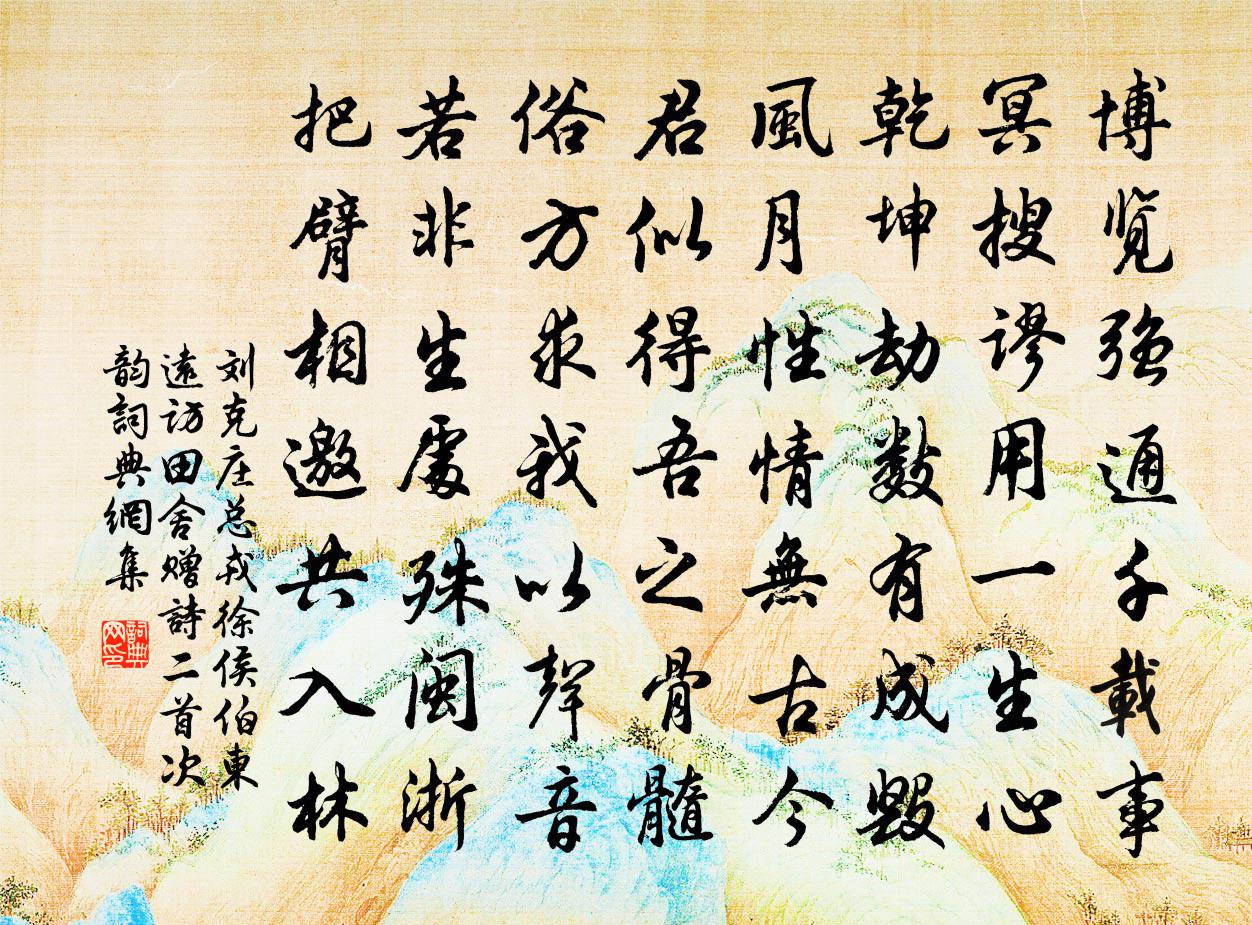 博覽强通千載事
冥搜謬用一生心
乾坤劫數有成毀
風月性情無古今
君似得吾之骨髓
俗方求我以聲音
若非生處殊閩浙
把臂相邀共入林
刘克庄总戎徐侯伯東
遠訪田舍赠詩二首次
韵詞典網集
詞典
网印